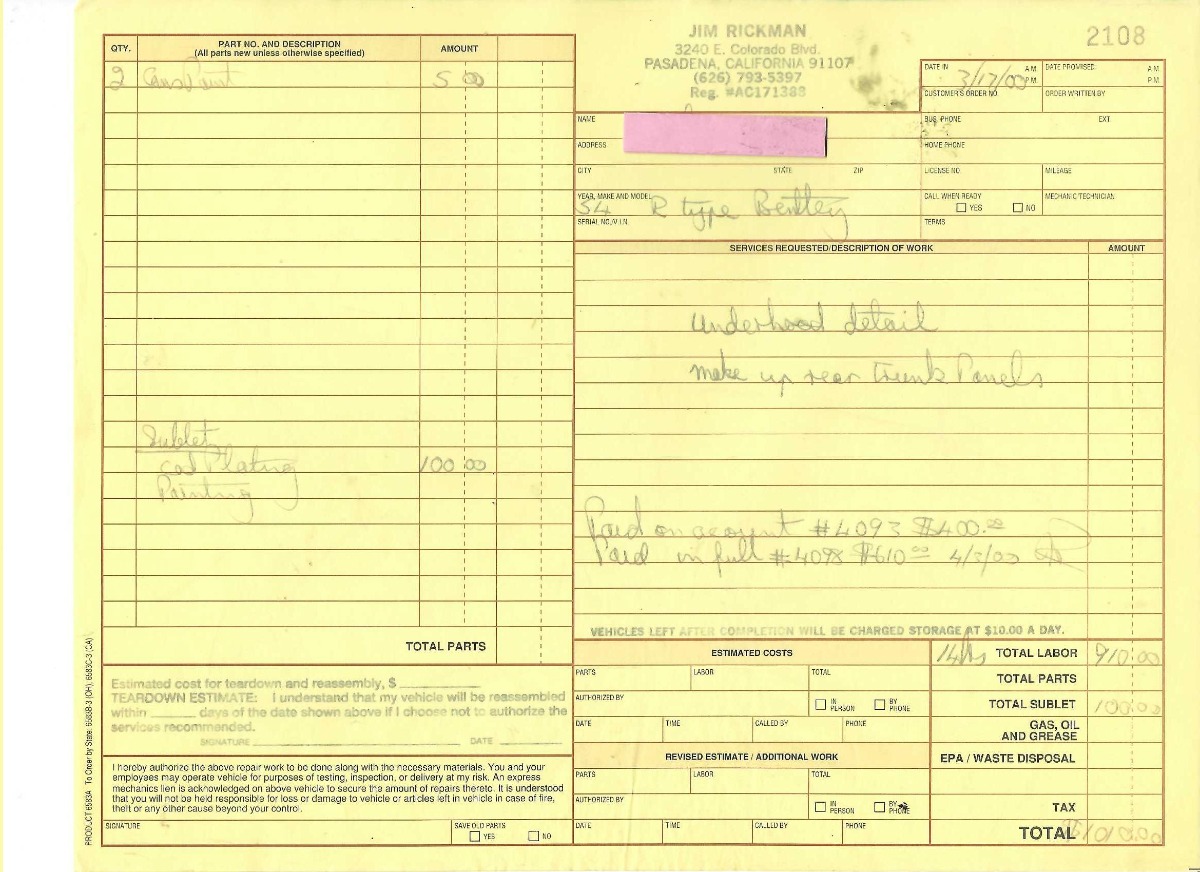 JIM RICKMAN
3240 E. Colorado Blvd.
PASADENA, CALIFORNIA 91107
(626) 793-5397
Reg. #AC171383
2108
QTY.
PART NO. AND DESCRIPTION
(All parts new unless otherwise specified)
AMOUNT
2 Cans Paint 5 00
Sublet
cad Plating 100 00
Painting
TOTAL PARTS
Estimated cost for teardown and reassembly, $
TEARDOWN ESTIMATE: I understand that my vehicle will be reassembled
within ______ days of the date shown above if I choose not to authorize the
services recommended.
SIGNATURE DATE
I hereby authorize the above repair work to be done along with the necessary materials. You and your
employees may operate vehicle for purposes of testing, inspection, or delivery at my risk. An express
mechanics lien is acknowledged on above vehicle to secure the amount of repairs thereto. It is understood
that you will not be held responsible for loss or damage to vehicle or articles left in vehicle in case of fire,
theft or any other cause beyond your control.
SIGNATURE
SAVE OLD PARTS
YES NO
PRODUCT 6583A To Order by State: 6583B-3 (OH), 6583C-3 (CA)
DATE IN 3/17/03 A.M. P.M.
DATE PROMISED A.M. P.M.
CUSTOMER'S ORDER NO.
ORDER WRITTEN BY
NAME
BUS. PHONE EXT.
ADDRESS
HOME PHONE
CITY STATE ZIP
LICENSE NO.
MILEAGE
YEAR, MAKE AND MODEL
54 R type Bentley
CALL WHEN READY
YES NO
MECHANIC/TECHNICIAN
SERIAL NO./V.I.N.
TERMS
SERVICES REQUESTED/DESCRIPTION OF WORK
AMOUNT
Underhood detail
make up rear trunk Panels
Paid on account #4093 $400.00
Paid in full #4098 $610 00 4/3/03
VEHICLES LEFT AFTER COMPLETION WILL BE CHARGED STORAGE AT $10.00 A DAY.
ESTIMATED COSTS
PARTS LABOR TOTAL
AUTHORIZED BY
IN PERSON BY PHONE
DATE TIME CALLED BY PHONE
REVISED ESTIMATE / ADDITIONAL WORK
PARTS LABOR TOTAL
AUTHORIZED BY
IN PERSON BY PHONE
DATE TIME CALLED BY PHONE
14 hrs TOTAL LABOR 910 00
TOTAL PARTS
TOTAL SUBLET 100 00
GAS, OIL
AND GREASE
EPA / WASTE DISPOSAL
TAX
TOTAL 1010 00